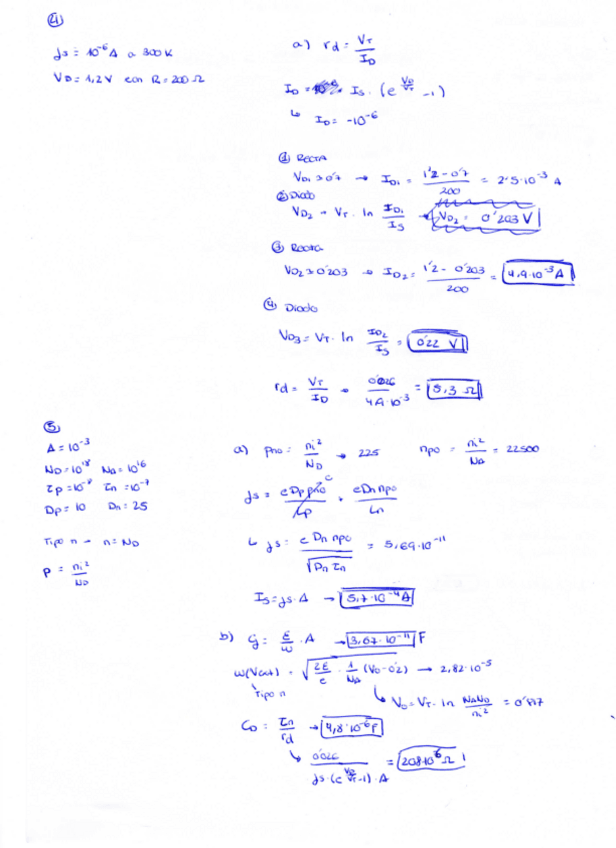 4
Js = 10^-6 A a 300 K
VD = 1,2 V con R = 200 Ω
a) rd = VT / ID
ID = IS · (e^(VD/VT) - 1)
↳ ID = -10^-6
① Recta
VD1 = 0'7 → ID1 = (1'2 - 0'7) / 200 = 2'5·10^-3 A
② Diodo
VD2 = VT · ln (ID1 / IS) → VD2 = 0'203 V
③ Recta
VD2 = 0'203 → ID2 = (1'2 - 0'203) / 200 = 4,9·10^-3 A
④ Diodo
VD3 = VT · ln (ID2 / IS) = 0'22 V
rd = VT / ID → 0'026 / 4,9·10^-3 = 5,3 Ω
5
A = 10^-3
ND = 10^18 NA = 10^16
τp = 10^-8 τn = 10^-7
Dp = 10 Dn = 25
Tipo n → n = ND
P = ni^2 / ND
a) pno = ni^2 / ND → 225 npo = ni^2 / NA = 22500
Js = e Dp pno / Lp + e Dn npo / Ln
↳ Js = e Dn npo / √(Dn τn) = 5,69·10^-11
IS = Js · A → 5,7·10^-14 A
b) Cj = ε / w · A → 3,67·10^-11 F
w(Vext) = √(2ε / e · 1 / NA (V0 - 0'2)) → 2,82·10^-5
Tipo n
↳ V0 = VT · ln (NA ND / ni^2) = 0'817
CD = τn / rd → 4,8·10^-6 F
↳ 0'026 / (Js · (e^(VD/VT) - 1) · A) = 208·10^6 Ω